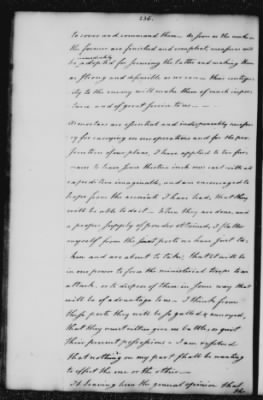 236.
to cover and command them. As soon as the works on
the former are finished and compleat, measures will
immediately
be adopted for securing the latter and making them
as strong and defensible as we can. Their contigu-
ity to the enemy will make them of much impor-
tance and of great service to us.
As mortars are essential and indispensably necessa-
ry for carrying on our operations and for the pro-
secution of our plans, I have applied to two fur-
naces to have some thirteen inch ones cast with all
expedition imaginable, and am encouraged to
hope from the accounts I have had, that they
will be able to do it. When they are done, and
a proper supply of powder obtained, I flatter
myself from the posts we have just ta-
ken and are about to take, that it will be
in our power to force the ministerial troops to an
attack, or to dispose of them in some way that
will be of advantage to us. I think from
these posts they will be so galled & annoyed,
that they must either give us battle, or quit
their present possessions. I am resolved
that nothing on my part shall be wanting
to effect the one or the other.
It having been the general opinion that
the